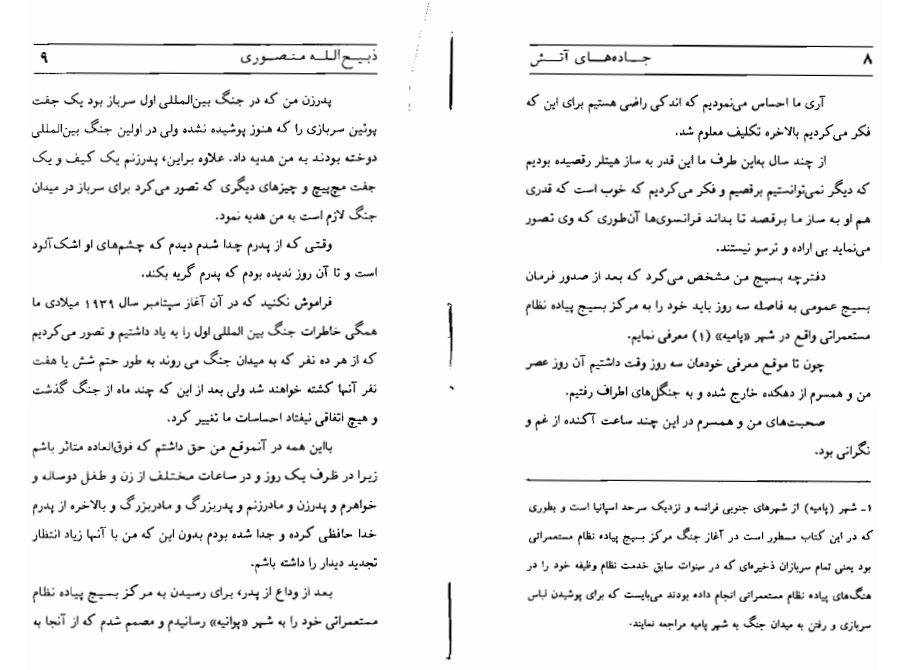 ۸ جـاده‌هـای آتـش
آری ما احساس می‌نمودیم که اندکی راضی هستیم برای این که
فکر می‌کردیم بالاخره تکلیف معلوم شد.
از چند سال به‌این طرف ما این قدر به ساز هیتلر رقصیده بودیم
که دیگر نمی‌توانستیم برقصیم و فکر می‌کردیم که خوب است که قدری
هم او به ساز ما برقصد تا بداند فرانسوی‌ها آن‌طوری که وی تصور
می‌نماید بی اراده و ترسو نیستند.
دفترچه بسیج من مشخص می‌کرد که بعد از صدور فرمان
بسیج عمومی به فاصله سه روز باید خود را به مرکز بسیج پیاده نظام
مستعمراتی واقع در شهر «پامیه» (۱) معرفی نمایم.
چون تا موقع معرفی خودمان سه روز وقت داشتیم آن روز عصر
من و همسرم از دهکده خارج شده و به جنگل‌های اطراف رفتیم.
صحبت‌های من و همسرم در این چند ساعت آکنده از غم و
نگرانی بود.
۱ـ شهر (پامیه) از شهرهای جنوبی فرانسه و نزدیک سرحد اسپانیا است و بطوری
که در این کتاب مسطور است در آغاز جنگ مرکز بسیج پیاده نظام مستعمراتی
بود یعنی تمام سربازان ذخیره‌ای که در سنوات سابق خدمت نظام وظیفه خود را در
هنگ‌های پیاده نظام مستعمراتی انجام داده بودند می‌بایست که برای پوشیدن لباس
سربازی و رفتن به میدان جنگ به شهر پامیه مراجعه نمایند.
ذبیح‌الله منصوری ۹
پدرزن من که در جنگ بین‌المللی اول سرباز بود یک جفت
پوتین سربازی را که هنوز پوشیده نشده ولی در اولین جنگ بین‌المللی
دوخته بودند به من هدیه داد. علاوه براین، پدرزنم یک کیف و یک
جفت مچ‌پیچ و چیزهای دیگری که تصور می‌کرد برای سرباز در میدان
جنگ لازم است به من هدیه نمود.
وقتی که از پدرم جدا شدم دیدم که چشم‌های او اشک‌آلود
است و تا آن روز ندیده بودم که پدرم گریه بکند.
فراموش نکنید که در آن آغاز سپتامبر سال ۱۹۳۹ میلادی ما
همگی خاطرات جنگ بین المللی اول را به یاد داشتیم و تصور می‌کردیم
که از هر ده نفر که به میدان جنگ می روند به طور حتم شش یا هفت
نفر آنها کشته خواهند شد ولی بعد از این که چند ماه از جنگ گذشت
و هیچ اتفاقی نیفتاد احساسات ما تغییر کرد.
بااین همه در آنموقع من حق داشتم که فوق‌العاده متاثر باشم
زیرا در ظرف یک روز و در ساعات مختلف از زن و طفل دوساله و
خواهرم و پدرزن و مادرزنم و پدربزرگ و مادربزرگ و بالاخره از پدرم
خدا حافظی کرده و جدا شده بودم بدون این که من با آنها زیاد انتظار
تجدید دیدار را داشته باشم.
بعد از وداع از پدر، برای رسیدن به مرکز بسیج پیاده نظام
مستعمراتی خود را به شهر «پوانیه» رسانیدم و مصمم شدم که از آنجا به